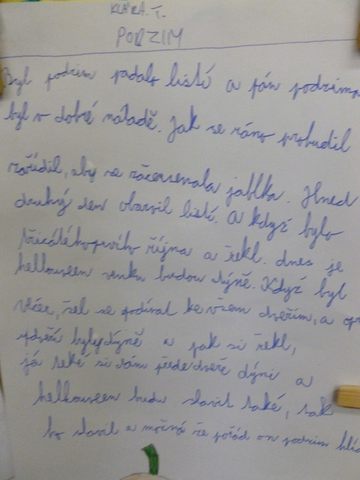 KLÁRA.T.
PODZIM
Byl podzim padalo listí a pán podzimu
byl v dobré náladě. Jak se ráno probudil
zařídil, aby se začervenala jablka. Hned
druhý den obarvil listí. A když bylo
třicátého prvího října a řekl. dnes je
helloween venku budou dýně. Když byl
večer, šel se podívat ke všem dveřím, a
byly dýně a pak si řekl,
já také si dám přede dveře dýni a
helloween budu slavit také, tak
ho slavil a možná že pořád on podzim hlíd